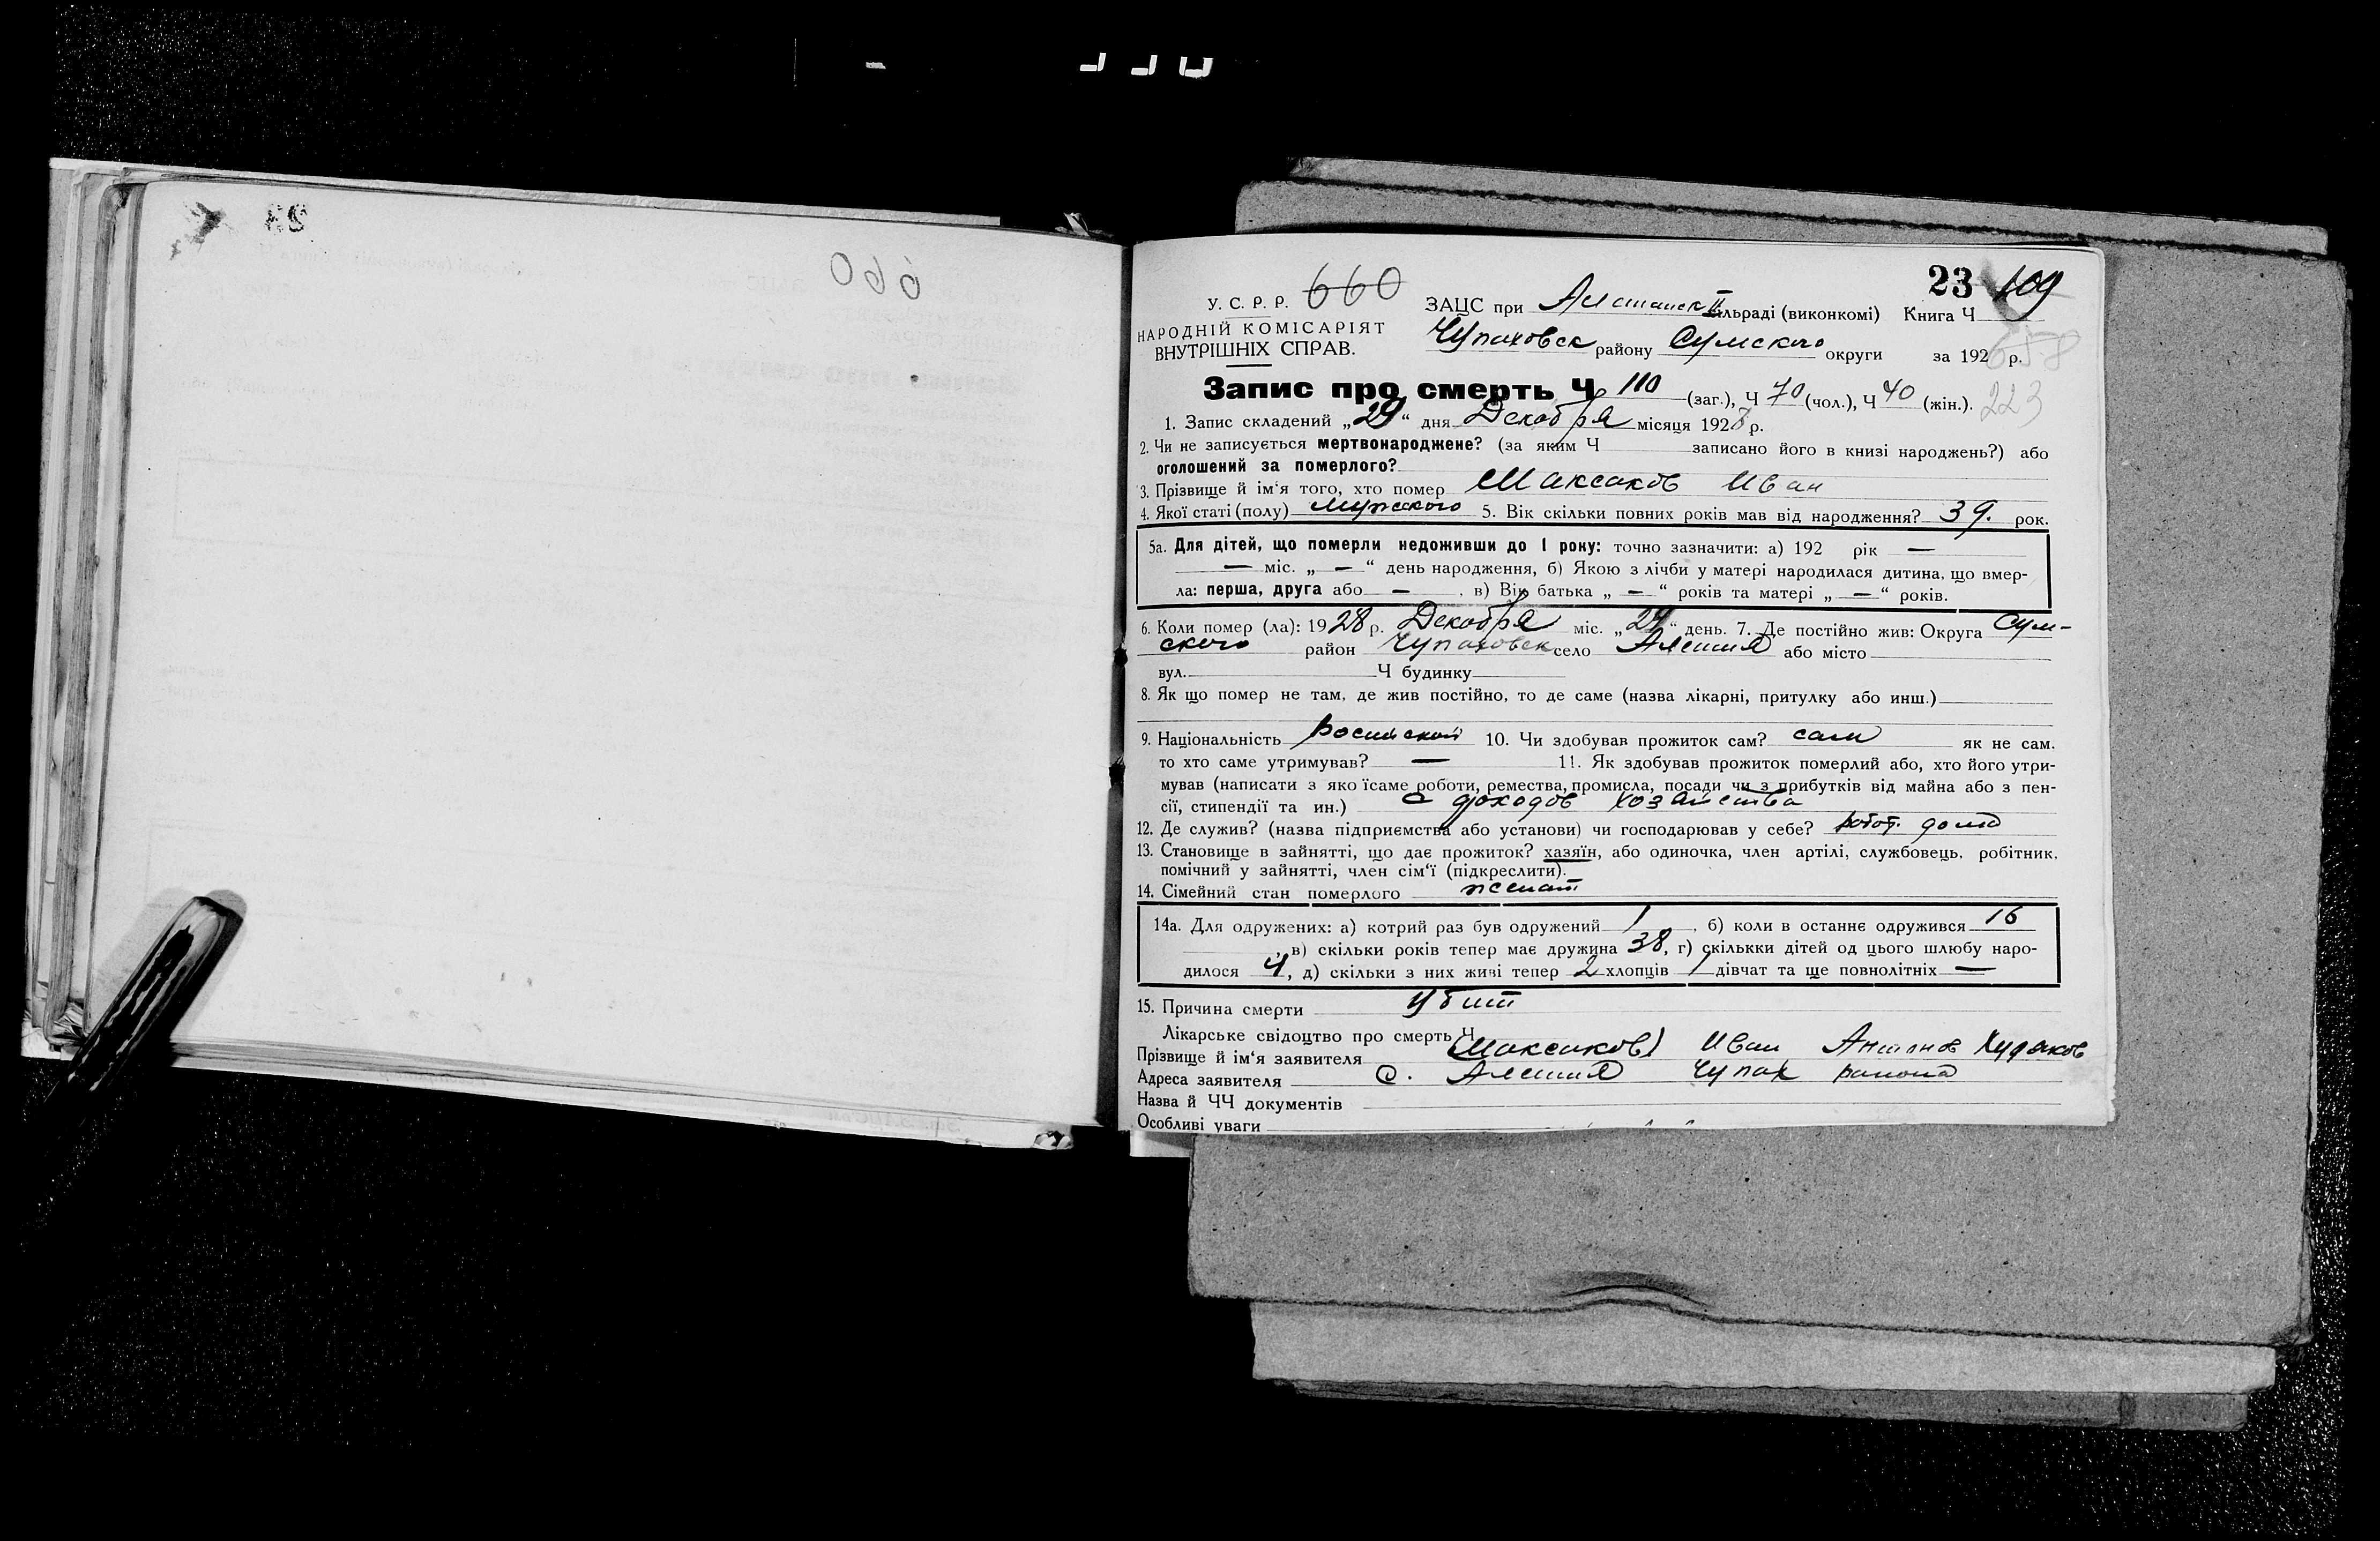 660
23 109
У. С. Р. Р.
НАРОДНІЙ КОМІСАРІЯТ
ВНУТРІШНІХ СПРАВ.
ЗАЦС при Алешанск сільраді (виконкомі) Книга Ч
Чупаховск району Сумского округи за 192 р.
658
223
Запис про смерть Ч 110 (заг.), Ч 70 (чол.), Ч 40 (жін.).
1. Запис складений „29“ дня Декабря місяця 1928 р.
2. Чи не записується мертвонароджене? (за яким Ч записано його в книзі народжень?) або
оголошений за померлого?
3. Прізвище й ім‘я того, хто помер Максаков Иван
4. Якої статі (полу) мужского 5. Вік скільки повних років мав від народження? 39. рок.
5а. Для дітей, що померли недоживши до 1 року: точно зазначити: а) 192 рік —
— міс. „ — “ день народження, б) Якою з лічби у матері народилася дитина, що вмер-
ла: перша, друга або — , в) Вік батька „ — “ років та матері „ — “ років.
6. Коли помер (ла): 1928 р. Декабря міс. „29“ день. 7. Де постійно жив: Округа Сум-
ского район Чупаховск село Алешня або місто
вул. Ч будинку
8. Як що помер не там, де жив постійно, то де саме (назва лікарні, притулку або инш.)
9. Національність Росийской 10. Чи здобував прожиток сам? сам як не сам,
то хто саме утримував? — 11. Як здобував прожиток померлий або, хто його утри-
мував (написати з яко їсаме роботи, ремества, промисла, посади чи з прибутків від майна або з пен-
сії, стипендії та ин.) с доходов хозайства
12. Де служив? (назва підприємства або установи) чи господарював у себе? робот. дома
13. Становище в зайнятті, що дає прожиток? хазяїн, або одиночка, член артілі, службовець, робітник,
помічний у зайнятті, член сім‘ї (підкреслити).
14. Сімейний стан померлого женат
14а. Для одружених: а) котрий раз був одружений 1, б) коли в останнє одружився 16
, в) скільки років тепер має дружина 38, г) скількки дітей од цього шлюбу наро-
дилося 4, д) скільки з них живі тепер 2 хлопців 1 дівчат та ще повнолітніх —
15. Причина смерти убит
Лікарське свідоцтво про смерть Ч
Прізвище й ім‘я заявителя Максаков Иван Антонов Худяков
Адреса заявителя С. Алешня Чупах района
Назва й ЧЧ документів
Особливі уваги